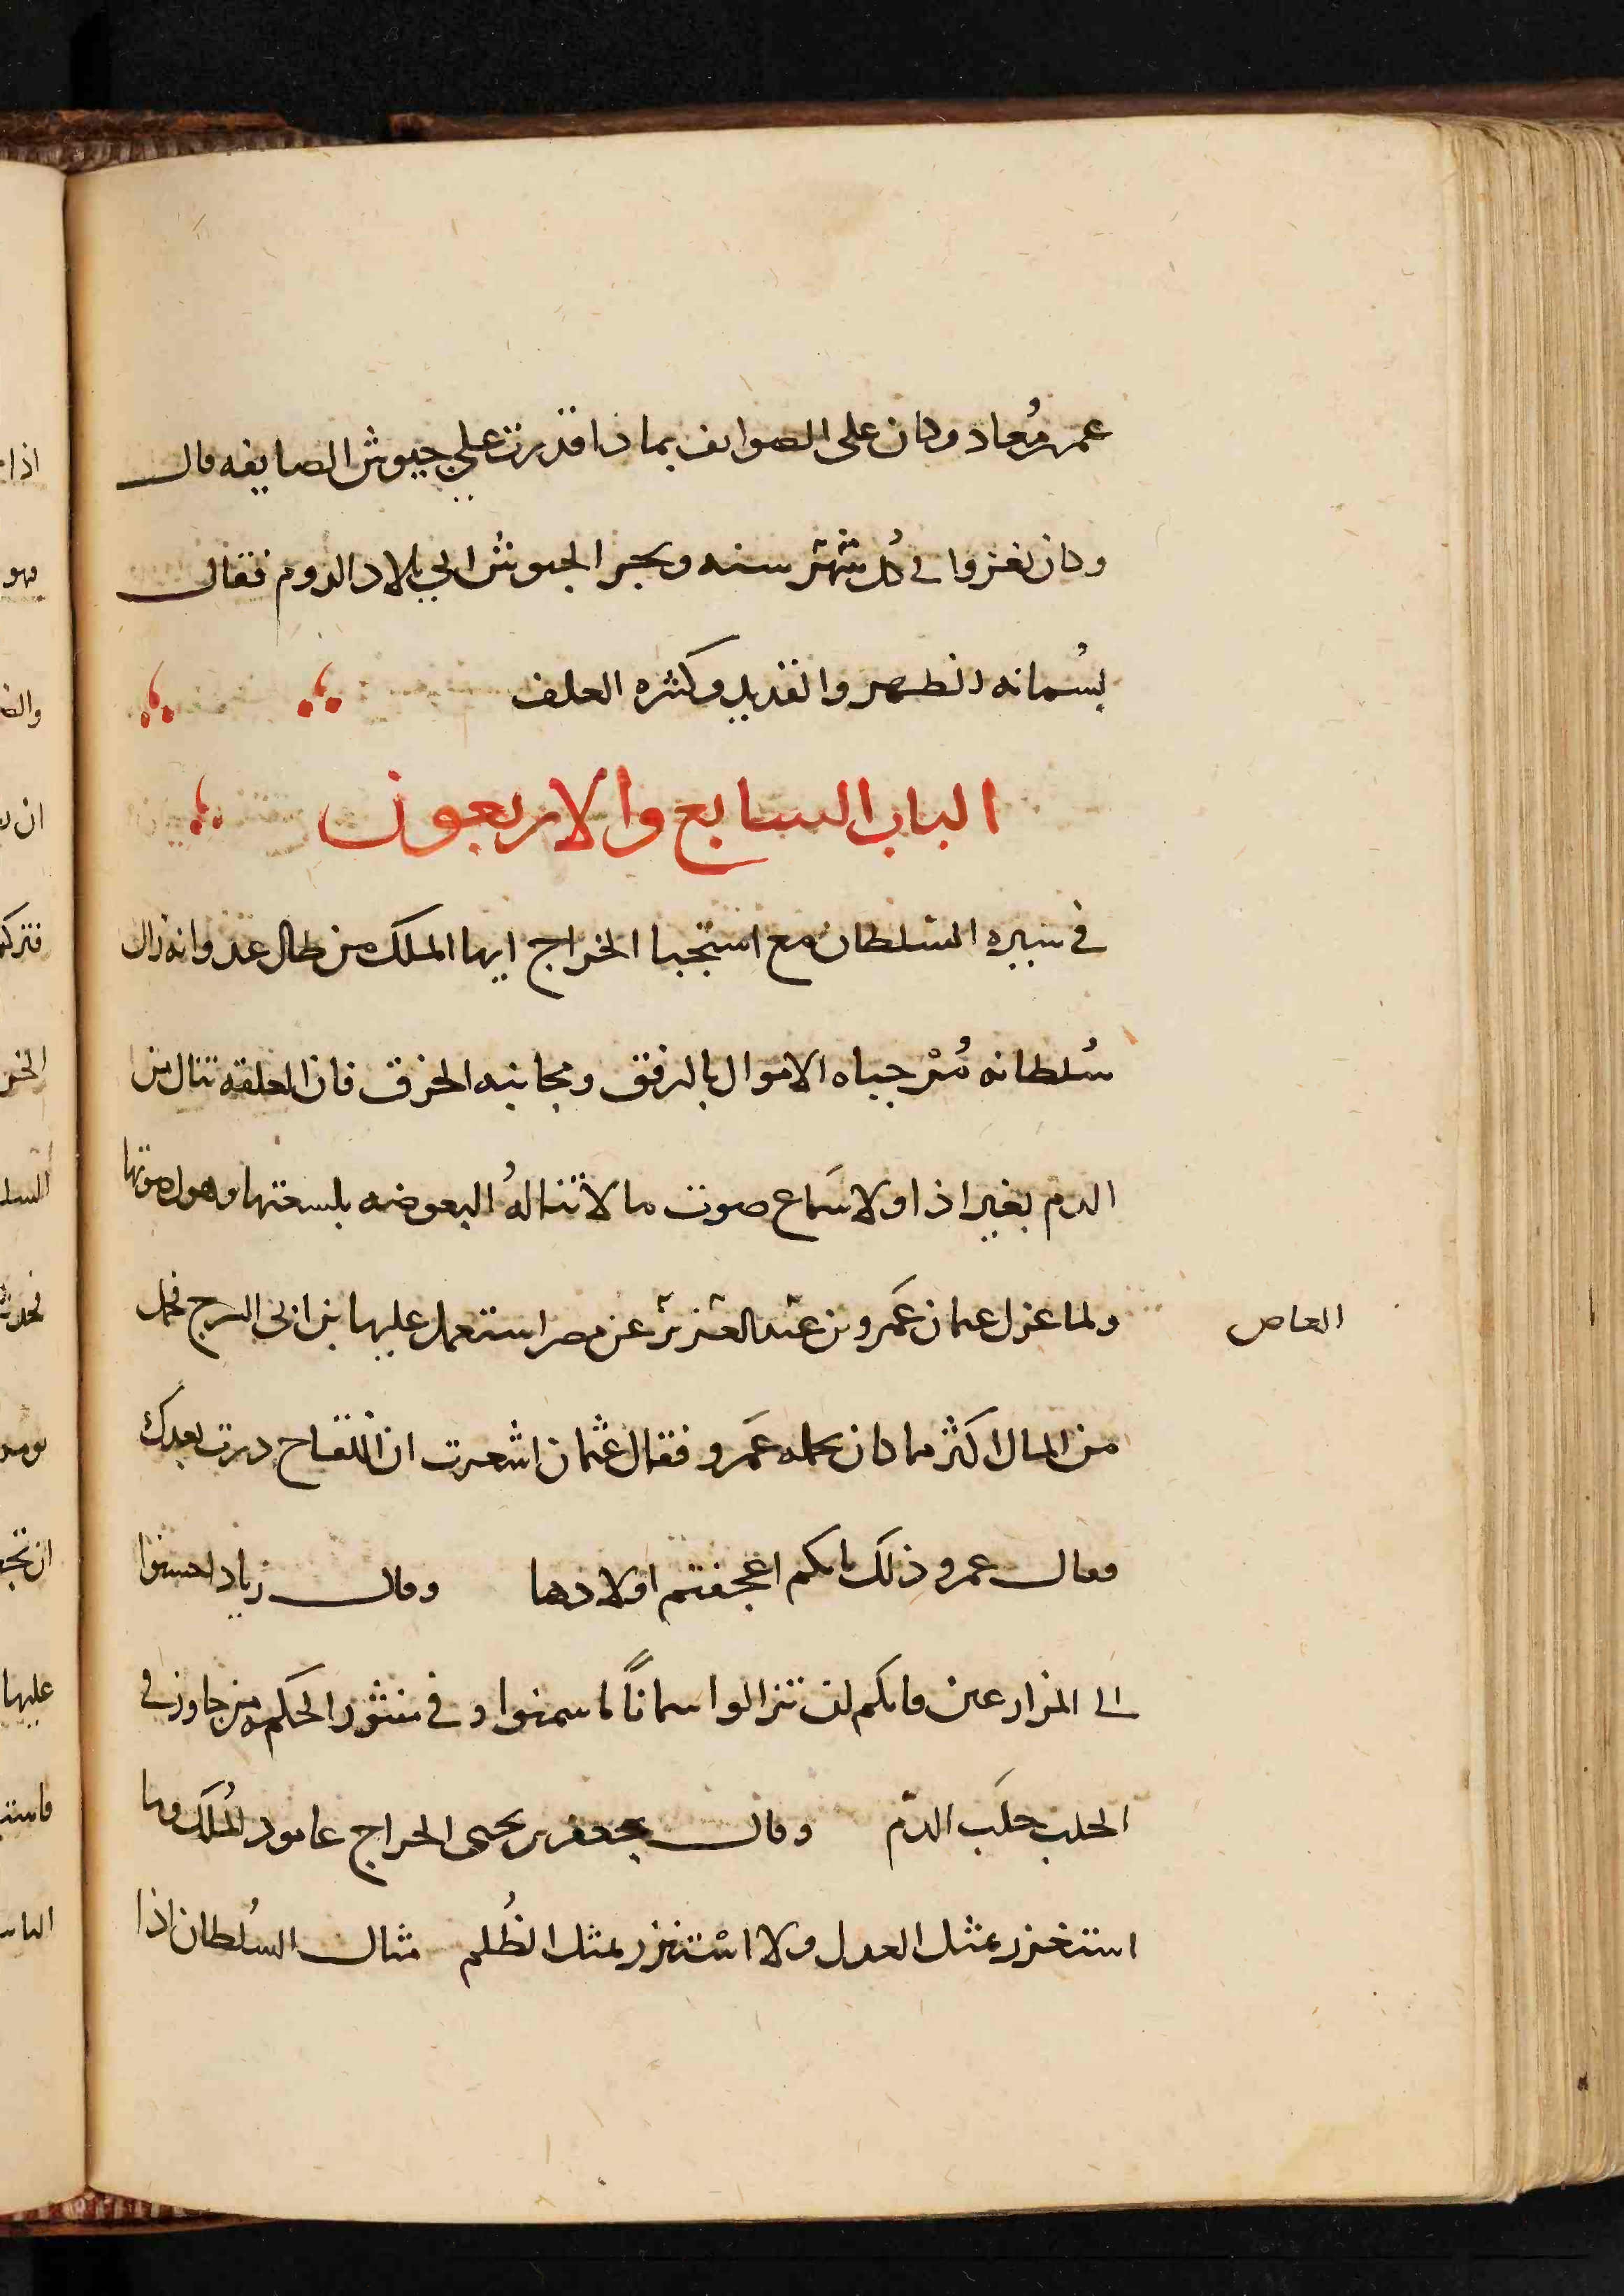 عمر مُعاد وكان على الصوايف بماذا قدرت علي جيوش الصايفه قال
وكان يغزوا في كُل شهر سنه ويجبر الجيوش الي بلاد الروم فقال
بسُمانه الظهر والقديد وكثره العلف
الباب السابع والاربعون
في سيره السلطان مع استجبا الخراج ايها الملك من طال عدوانه زال
سُلطانه مُرْ جباه الاموال بالرفق ومجانبه الخرق فان العلقه تنال من
الدم بغير اذا ولا سَماع صوت ما لا تنالهُ البعوضه بلسعتها وهول صوتها
ولما عزل عثمان عَمرو بن عبد العزيز عن مصر استعمل عليها بن ابي السرح فحمل
العاص
من المال اكثر مما كان يحمله عَمرو فقال عثمان اشعرت ان اللقاح درت بعدك
فقال عمرو ذلك بانكم اعجفتم اولادها وقال زياد احسنوا
الى المزارعين فانكم لن تزالوا سمانًا ما سمنوا وفي منثور الحكم من جاوز في
الحلب حلَب الدّم وقال جعفر بن يحيى الخراج عامود المُلك وما
استغزر بمثل العدل ولا اسْتنزر بمثل الظُلم مثال السُلطان اذا